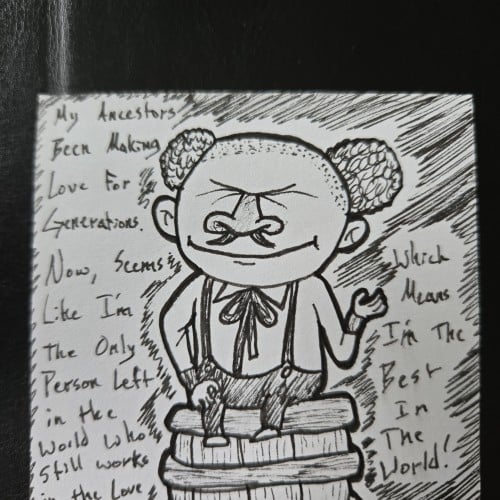 My Ancestors
Been Making
Love For
Generations.
Now, Seems
Like I'm
The Only
Person Left
in the
World who
Still works
in the Love
Which
Means
I'm The
Best
In
The
World!